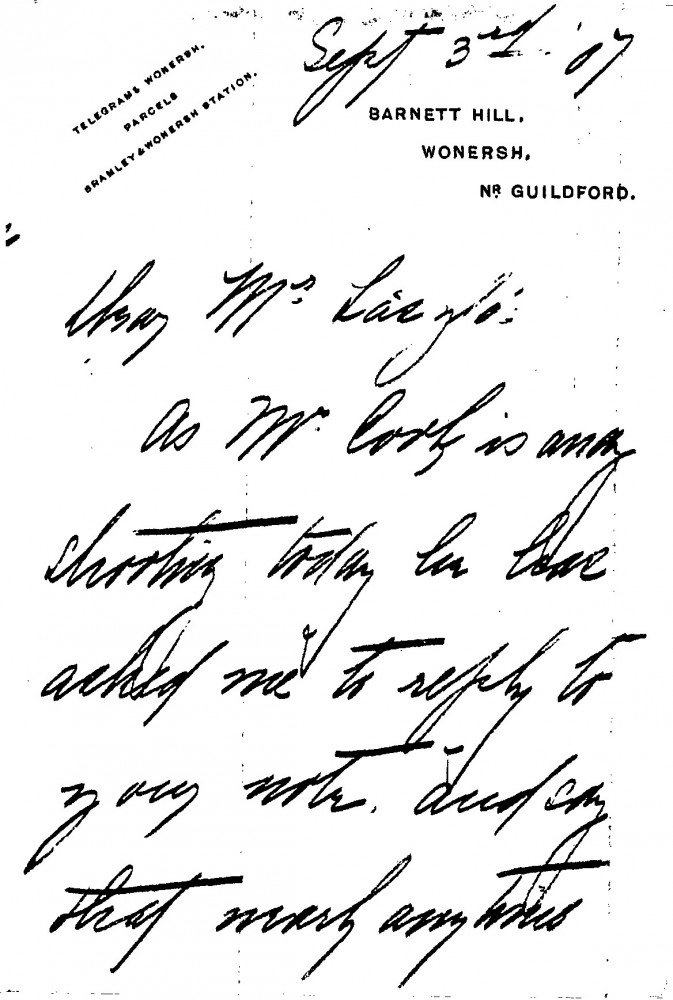 Sept 3rd '07
TELEGRAMS WONERSH.
PARCELS
BRAMLEY & WONERSH STATION.
BARNETT HILL,
WONERSH,
NR GUILDFORD.
Dear Mr László:
As Mr. Cook is away
shooting today he has
asked me to reply to
your note. and say
that nearly any time